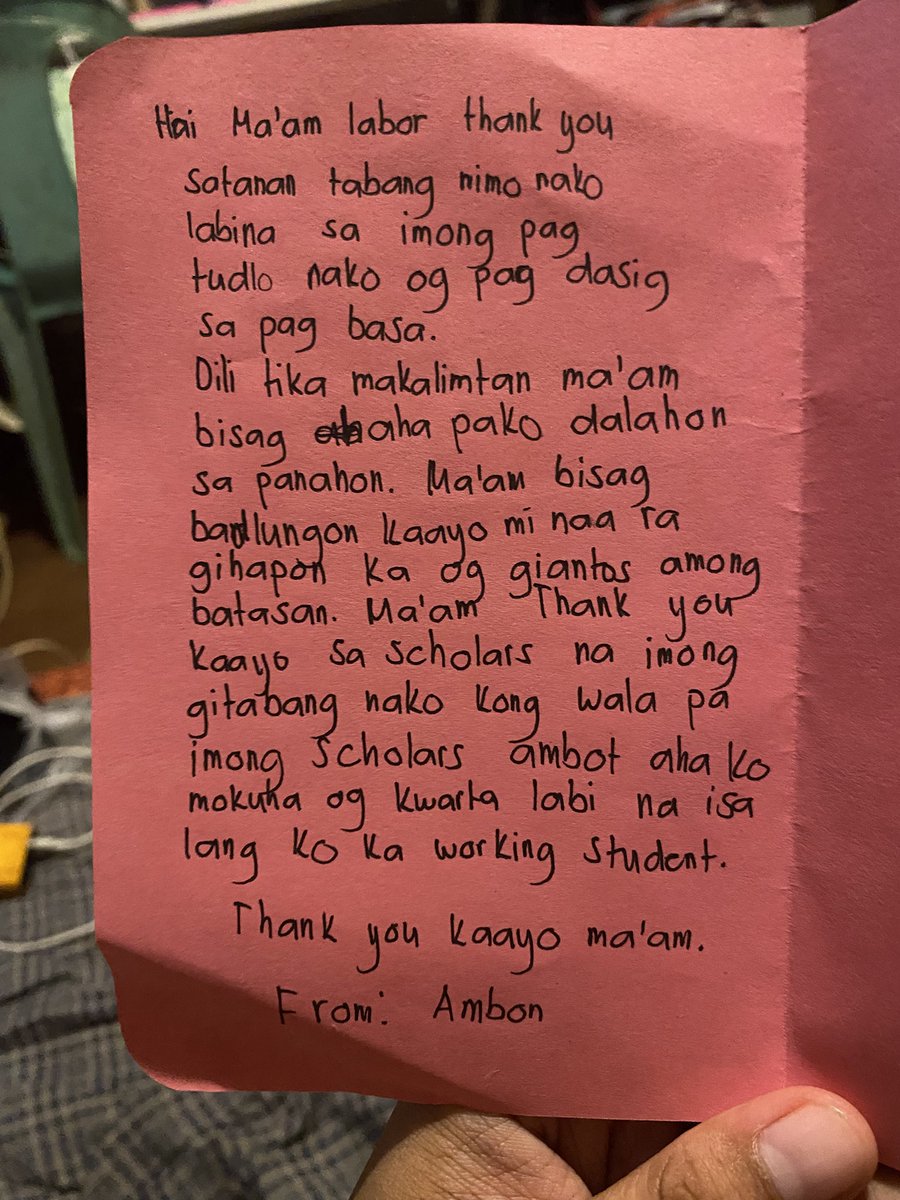 Hai Ma'am labor thank you
satanan tabang nimo nako
labina sa imong pag
tudlo nako og pag dasig
sa pag basa.
Dili tika makalimtan ma'am
bisag aha pako dalahon
sa panahon. Ma'am bisag
badlungon kaayo mi naa ra
gihapon ka og giantos among
batasan. Ma'am Thank you
kaayo sa scholars na imong
gitabang nako kong wala pa
imong scholars ambot aha ko
mokuha og kwarta labi na isa
lang ko ka working student.
Thank you kaayo ma'am.
From: Ambon